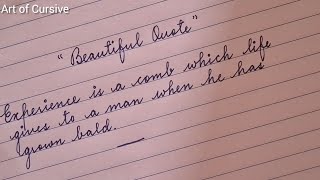 Art of Cursive
"Beautiful Quote"
Experience is a comb which life
gives to a man when he has
grown bald.